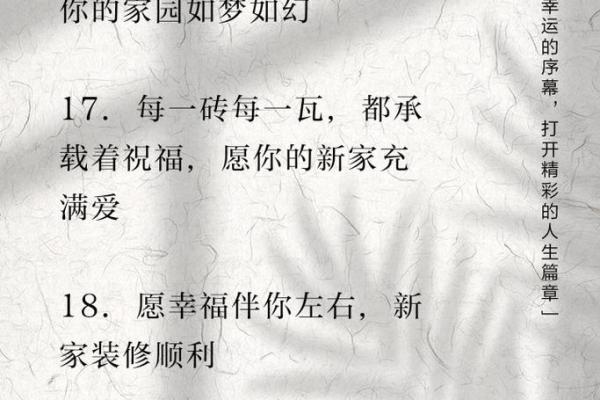 你的家园如梦如幻
17. 每一砖每一瓦, 都承
载着祝福, 愿你的新家充
满爱
18. 愿幸福伴你左右, 新
家装修顺利
幸运的序幕，打开精彩的人生篇章」